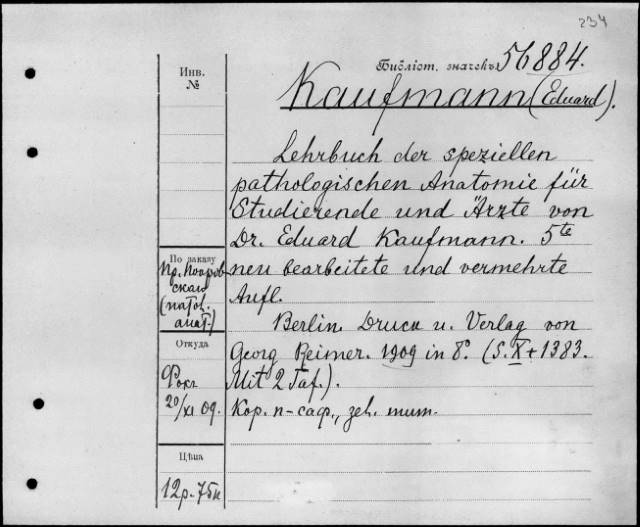 234
Инв.
№
Библіот. значекъ 56884.
Kaufmann (Eduard).
Lehrbuch der speziellen
pathologischen Anatomie für
Studierende und Ärzte von
Dr. Eduard Kaufmann. 5te
neu bearbeitete und vermehrte
Aufl.
Berlin. Druck u. Verlag von
Georg Reimer. 1909 in 8°. (S. X + 1383.
Mit 2 Taf.).
Кор. п-саф., зел. тит.
По заказу
Пр.
скаго
(патол.
анат.)
Откуда
Фокг
20/XI 09.
Цѣна
12 р. 75 к